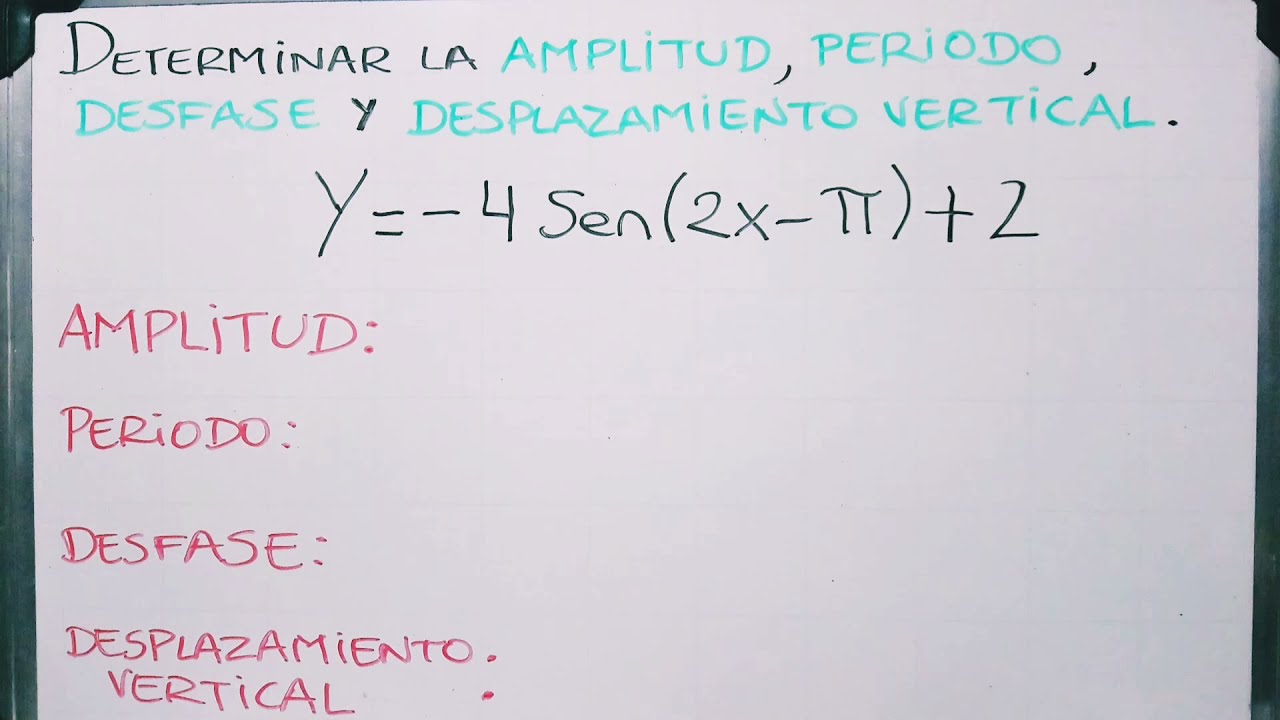 DETERMINAR LA AMPLITUD, PERIODO,
DESFASE Y DESPLAZAMIENTO VERTICAL.
Y=-4 Sen(2x-π)+2
AMPLITUD:
PERIODO:
DESFASE:
DESPLAZAMIENTO
VERTICAL :